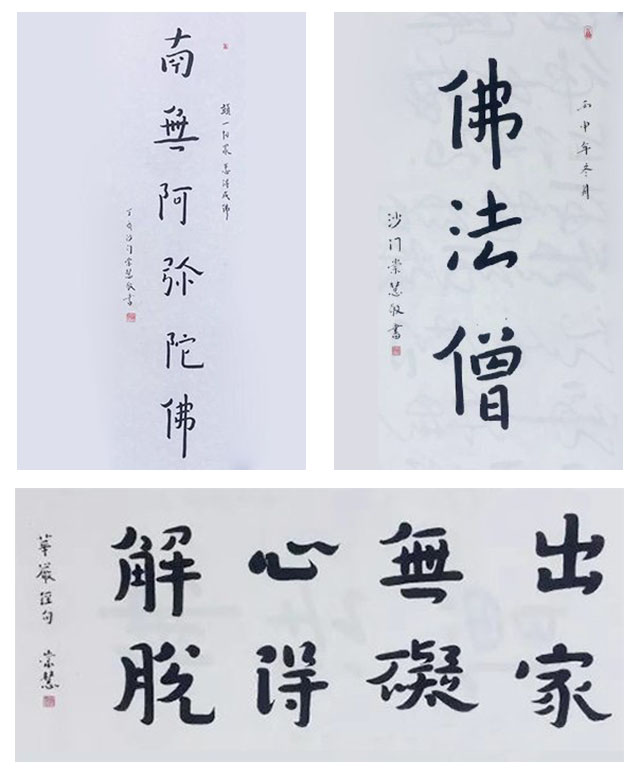 南無阿弥陀佛
丁酉沙门崇慧敬書
丙申年冬月
佛法僧
沙门崇慧敬書
出家
無礙
心得
解脱
華嚴經句 崇慧